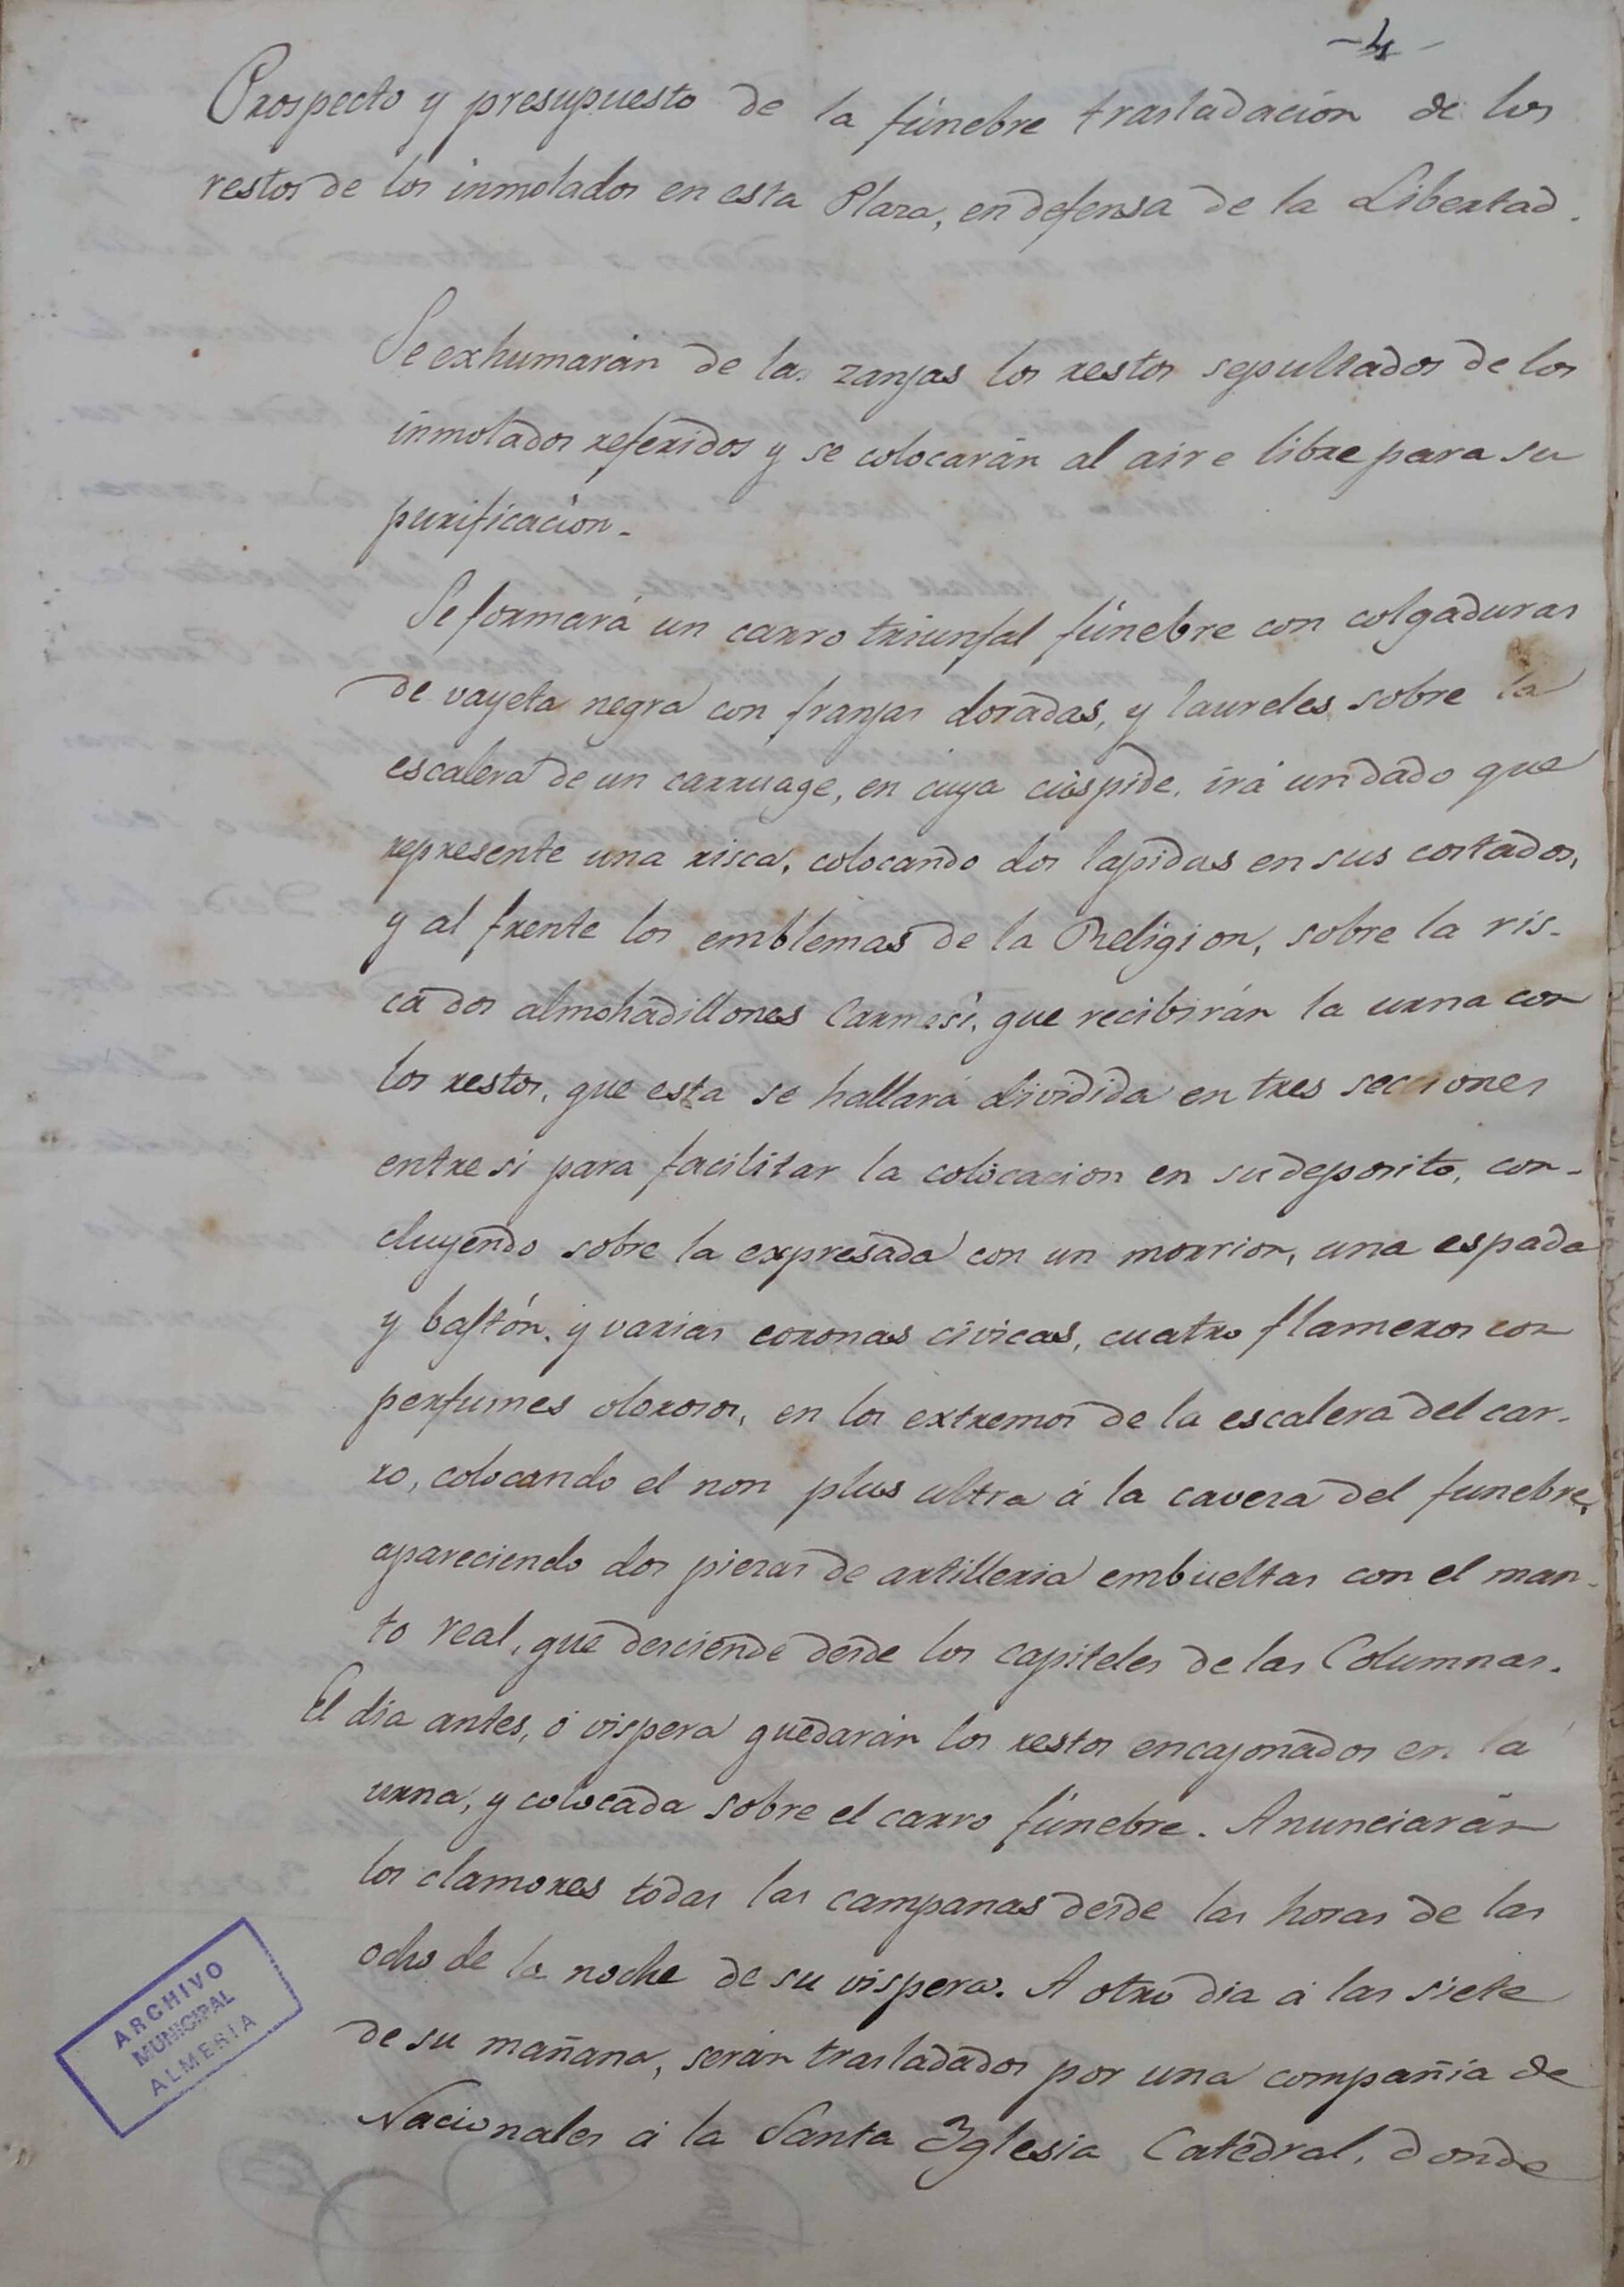 -4-
Prospecto y presupuesto de la fúnebre trasladación de los
restos de los inmolados en esta Plaza, en defensa de la Libertad.
Se exhumarán de las zanjas los restos sepultados de los
inmolados referidos y se colocarán al aire libre para su
purificación.
Se formará un carro triunfal fúnebre con colgaduras
de vayeta negra con franjas doradas, y laureles sobre la
escalera de un carruage, en cuya cúspide, irá un dado que
represente una risca, colocando dos lapidas en sus costados,
y al frente los emblemas de la Religion, sobre la ris-
ca dos almohadillones Carmesí, que recibirán la urna con
los restos, que esta se hallará dividida en tres secciones
entre si para facilitar la colocacion en su deposito, con-
cluyendo sobre la expresada con un morrion, una espada
y bastón, y varias coronas civicas, cuatro flameros con
perfumes olorosos, en los extremos de la escalera del car-
ro, colocando el non plus ultra á la caveza del funebre,
apareciendo dos piezas de artilleria embueltas con el man-
to real, que desciende desde los capiteles de las Columnas.
El dia antes, ó vispera quedarán los restos encajonados en la
urna, y colocada sobre el carro fúnebre. Anunciarán
los clamores todas las campanas desde las horas de las
ocho de la noche de su vispera. A otro dia á las siete
de su mañana, serán trasladados por una compañía de
Nacionales á la Santa Yglesia Catedral, donde
ARCHIVO
MUNICIPAL
ALMERIA